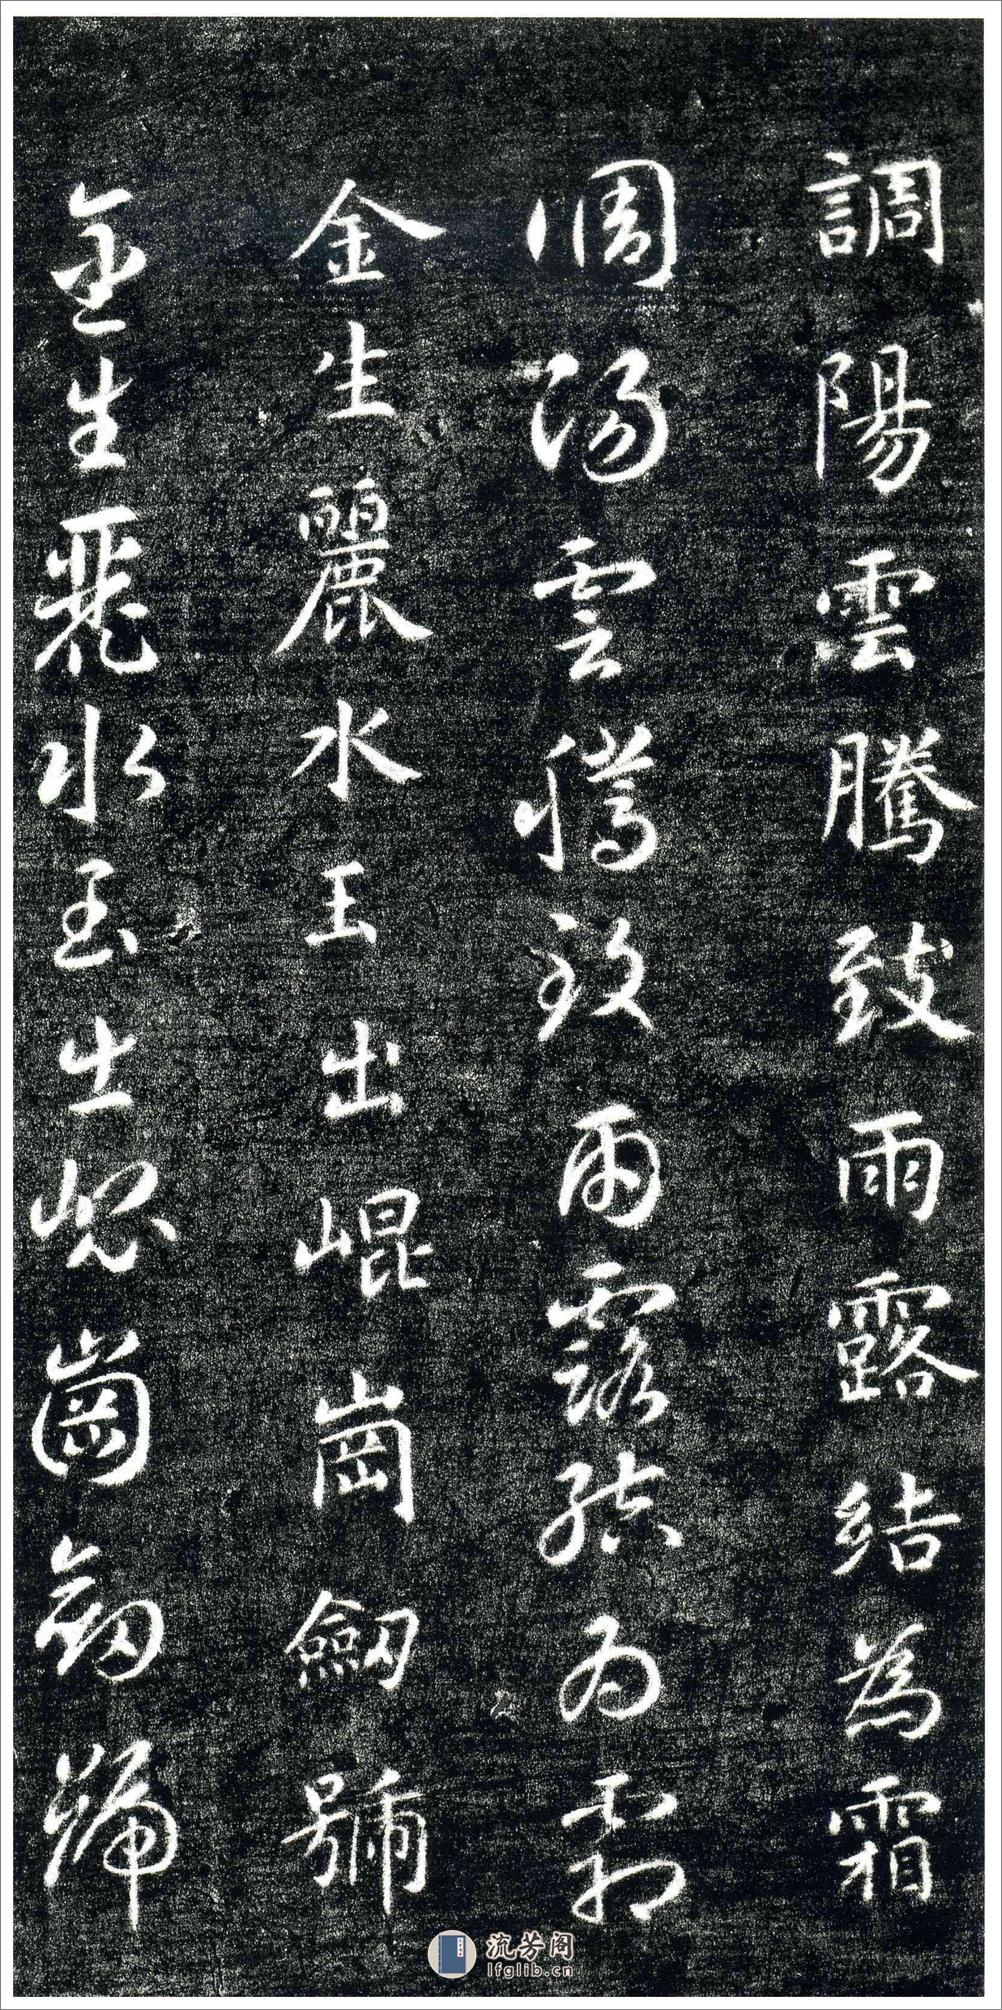 調陽雲騰致雨露結為霜
調陽雲騰致雨露結為霜
金生麗水玉出崐崗劒號
金生麗水玉出崐崗劒號
流芳阁
lfglib.cn